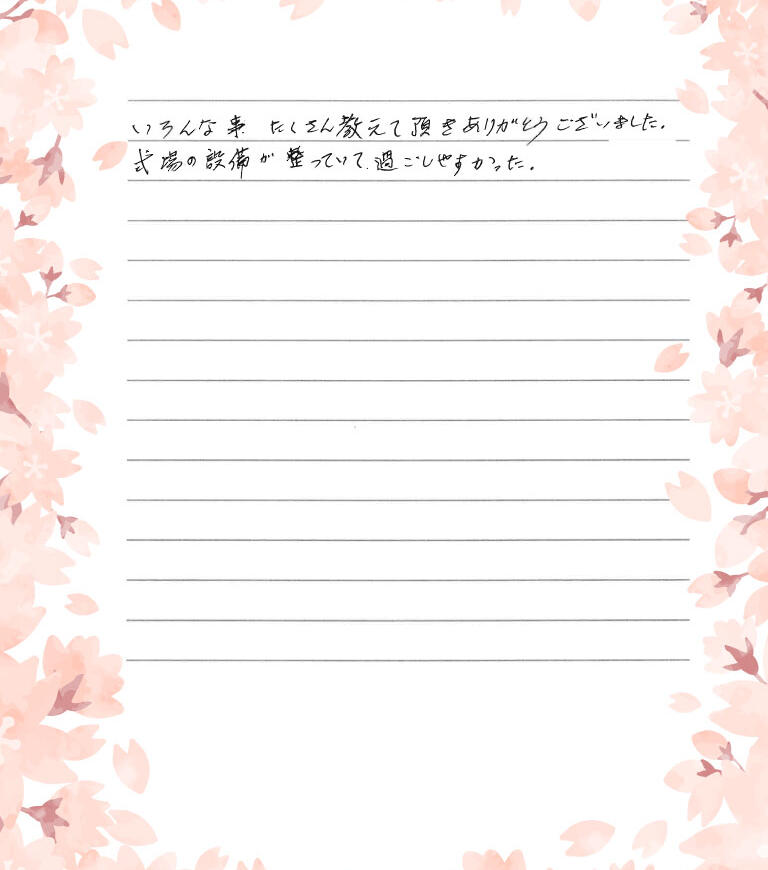 いろんな事 たくさん教えて頂きありがとうございました。
式場の設備が整っていて、過ごしやすかった。